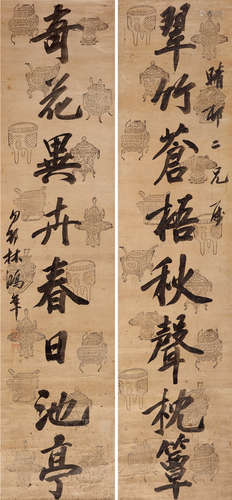 翠竹蒼梧秋聲枕簟
晴邨二兄屬
奇花異卉春日池亭
林鴻年